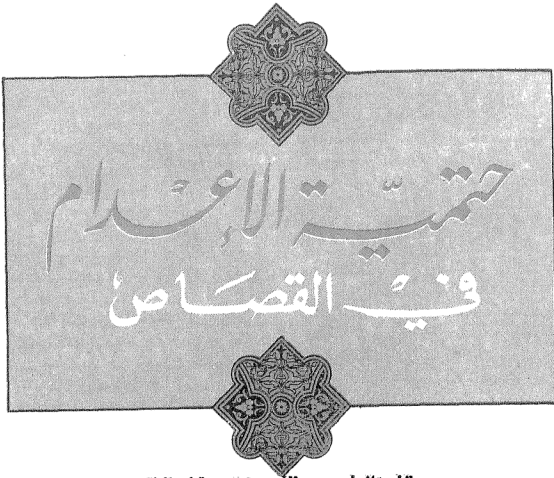 حتميّة الإعدام
في القصاص